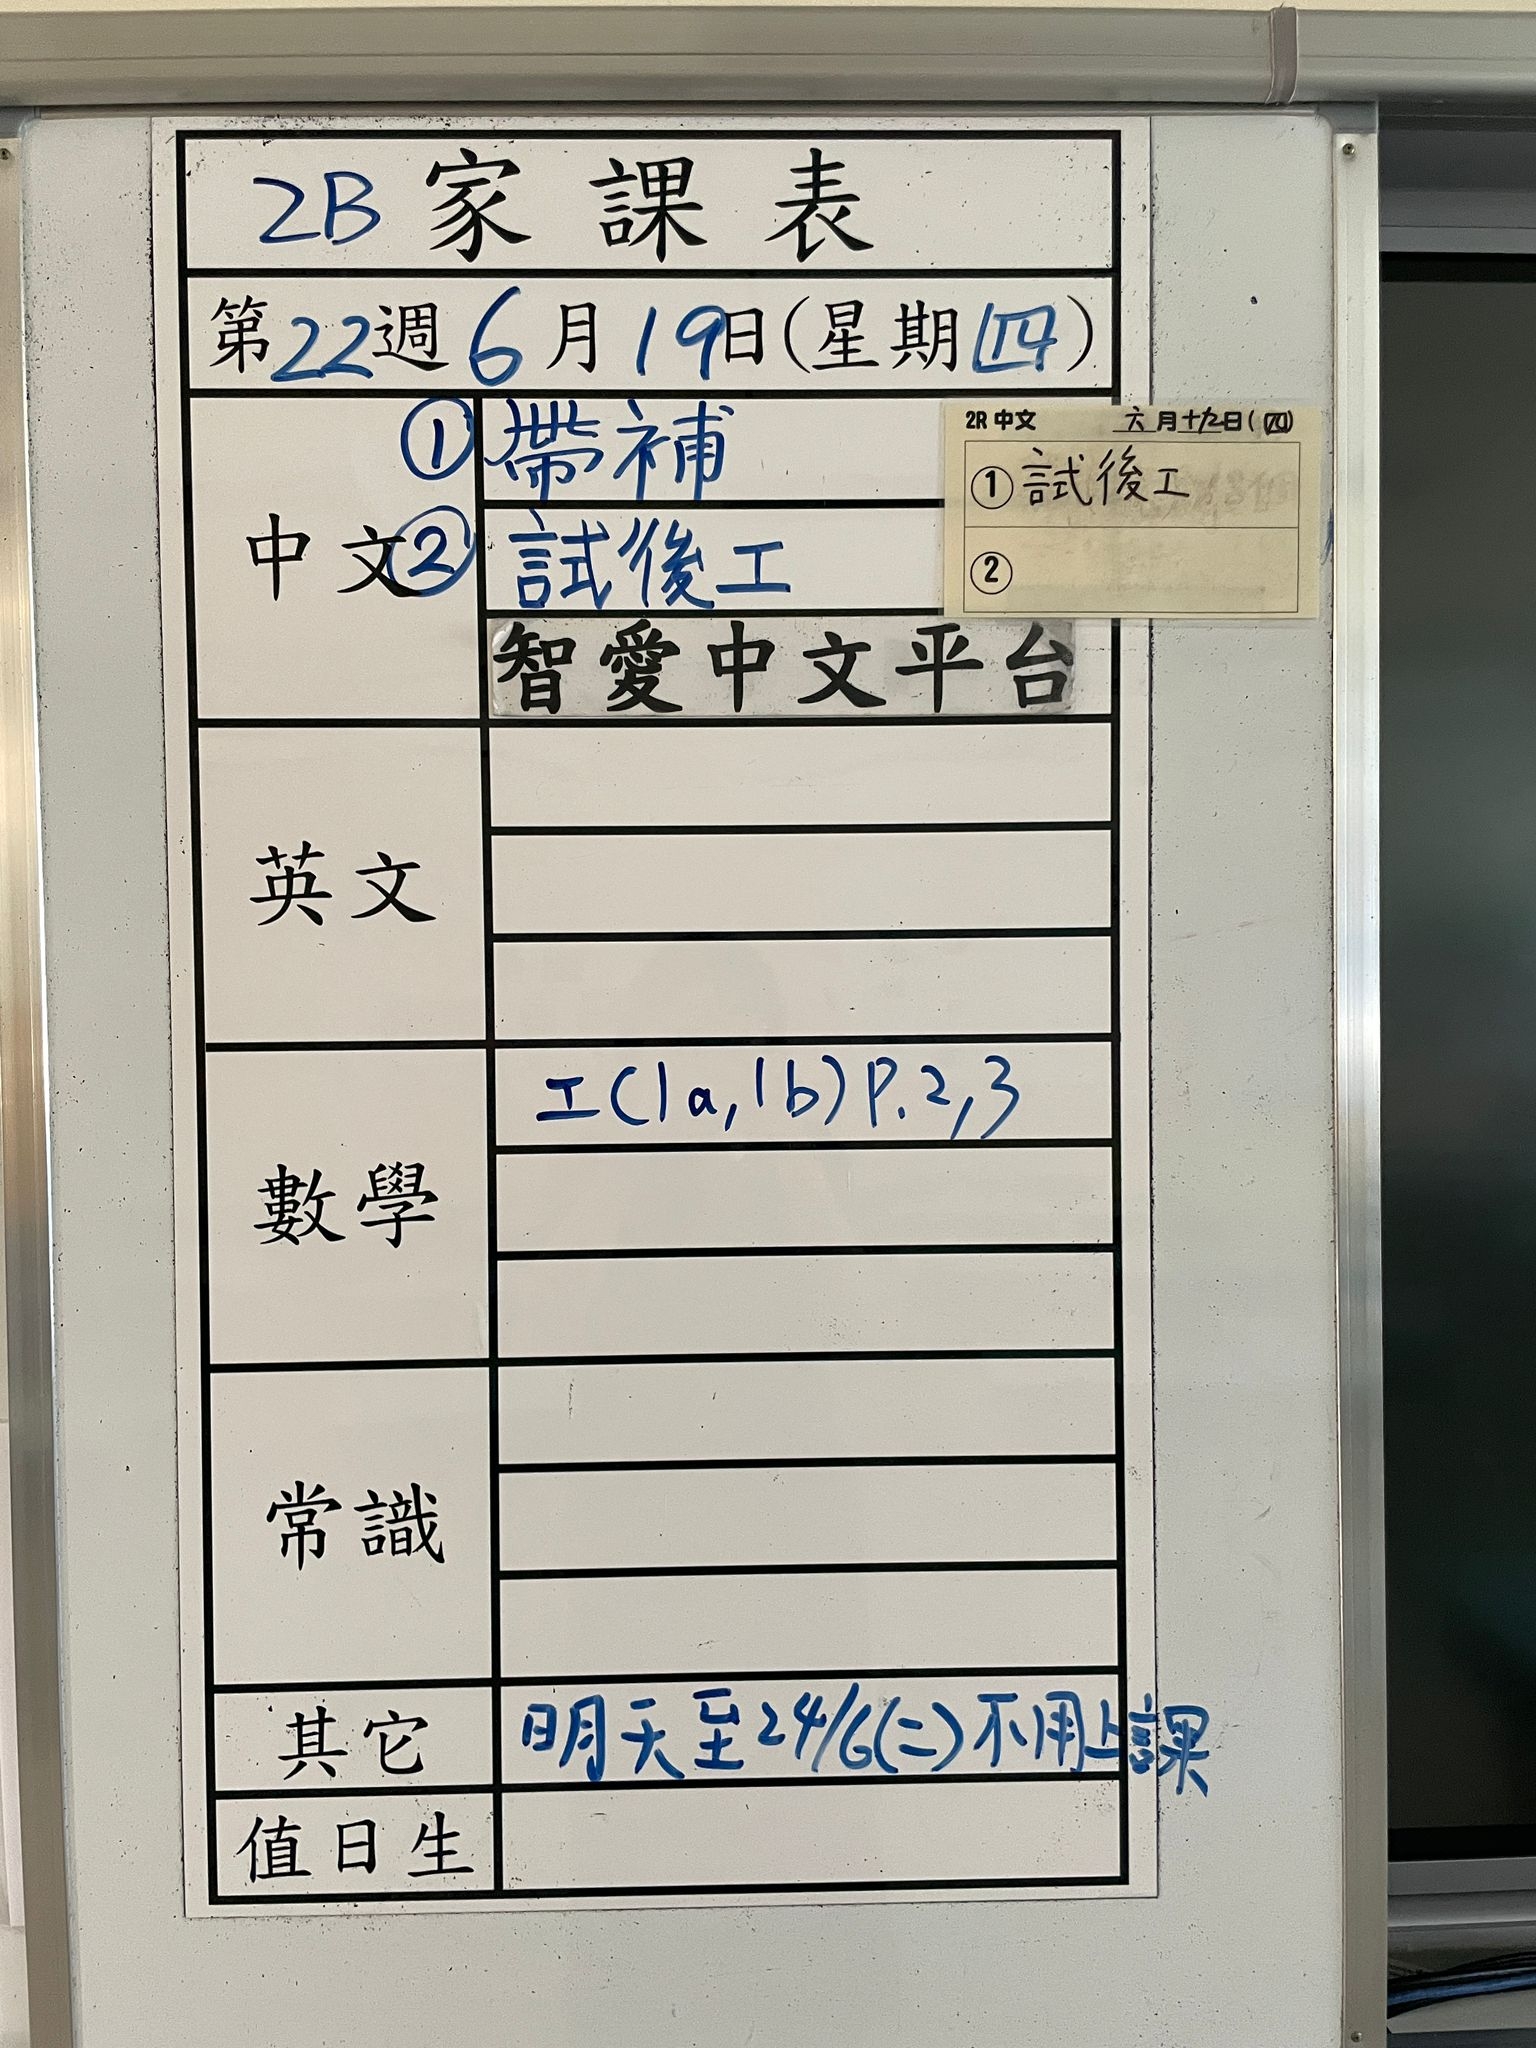 2B 家課表
第22週 6月19日(星期四)
中文
① 帶補
② 試後工
智愛中文平台
2R 中文 六月十九日(四)
① 試後工
②
英文
數學
工(1a,1b) P.2,3
常識
其它
明天至24/6(二)不用上課
值日生